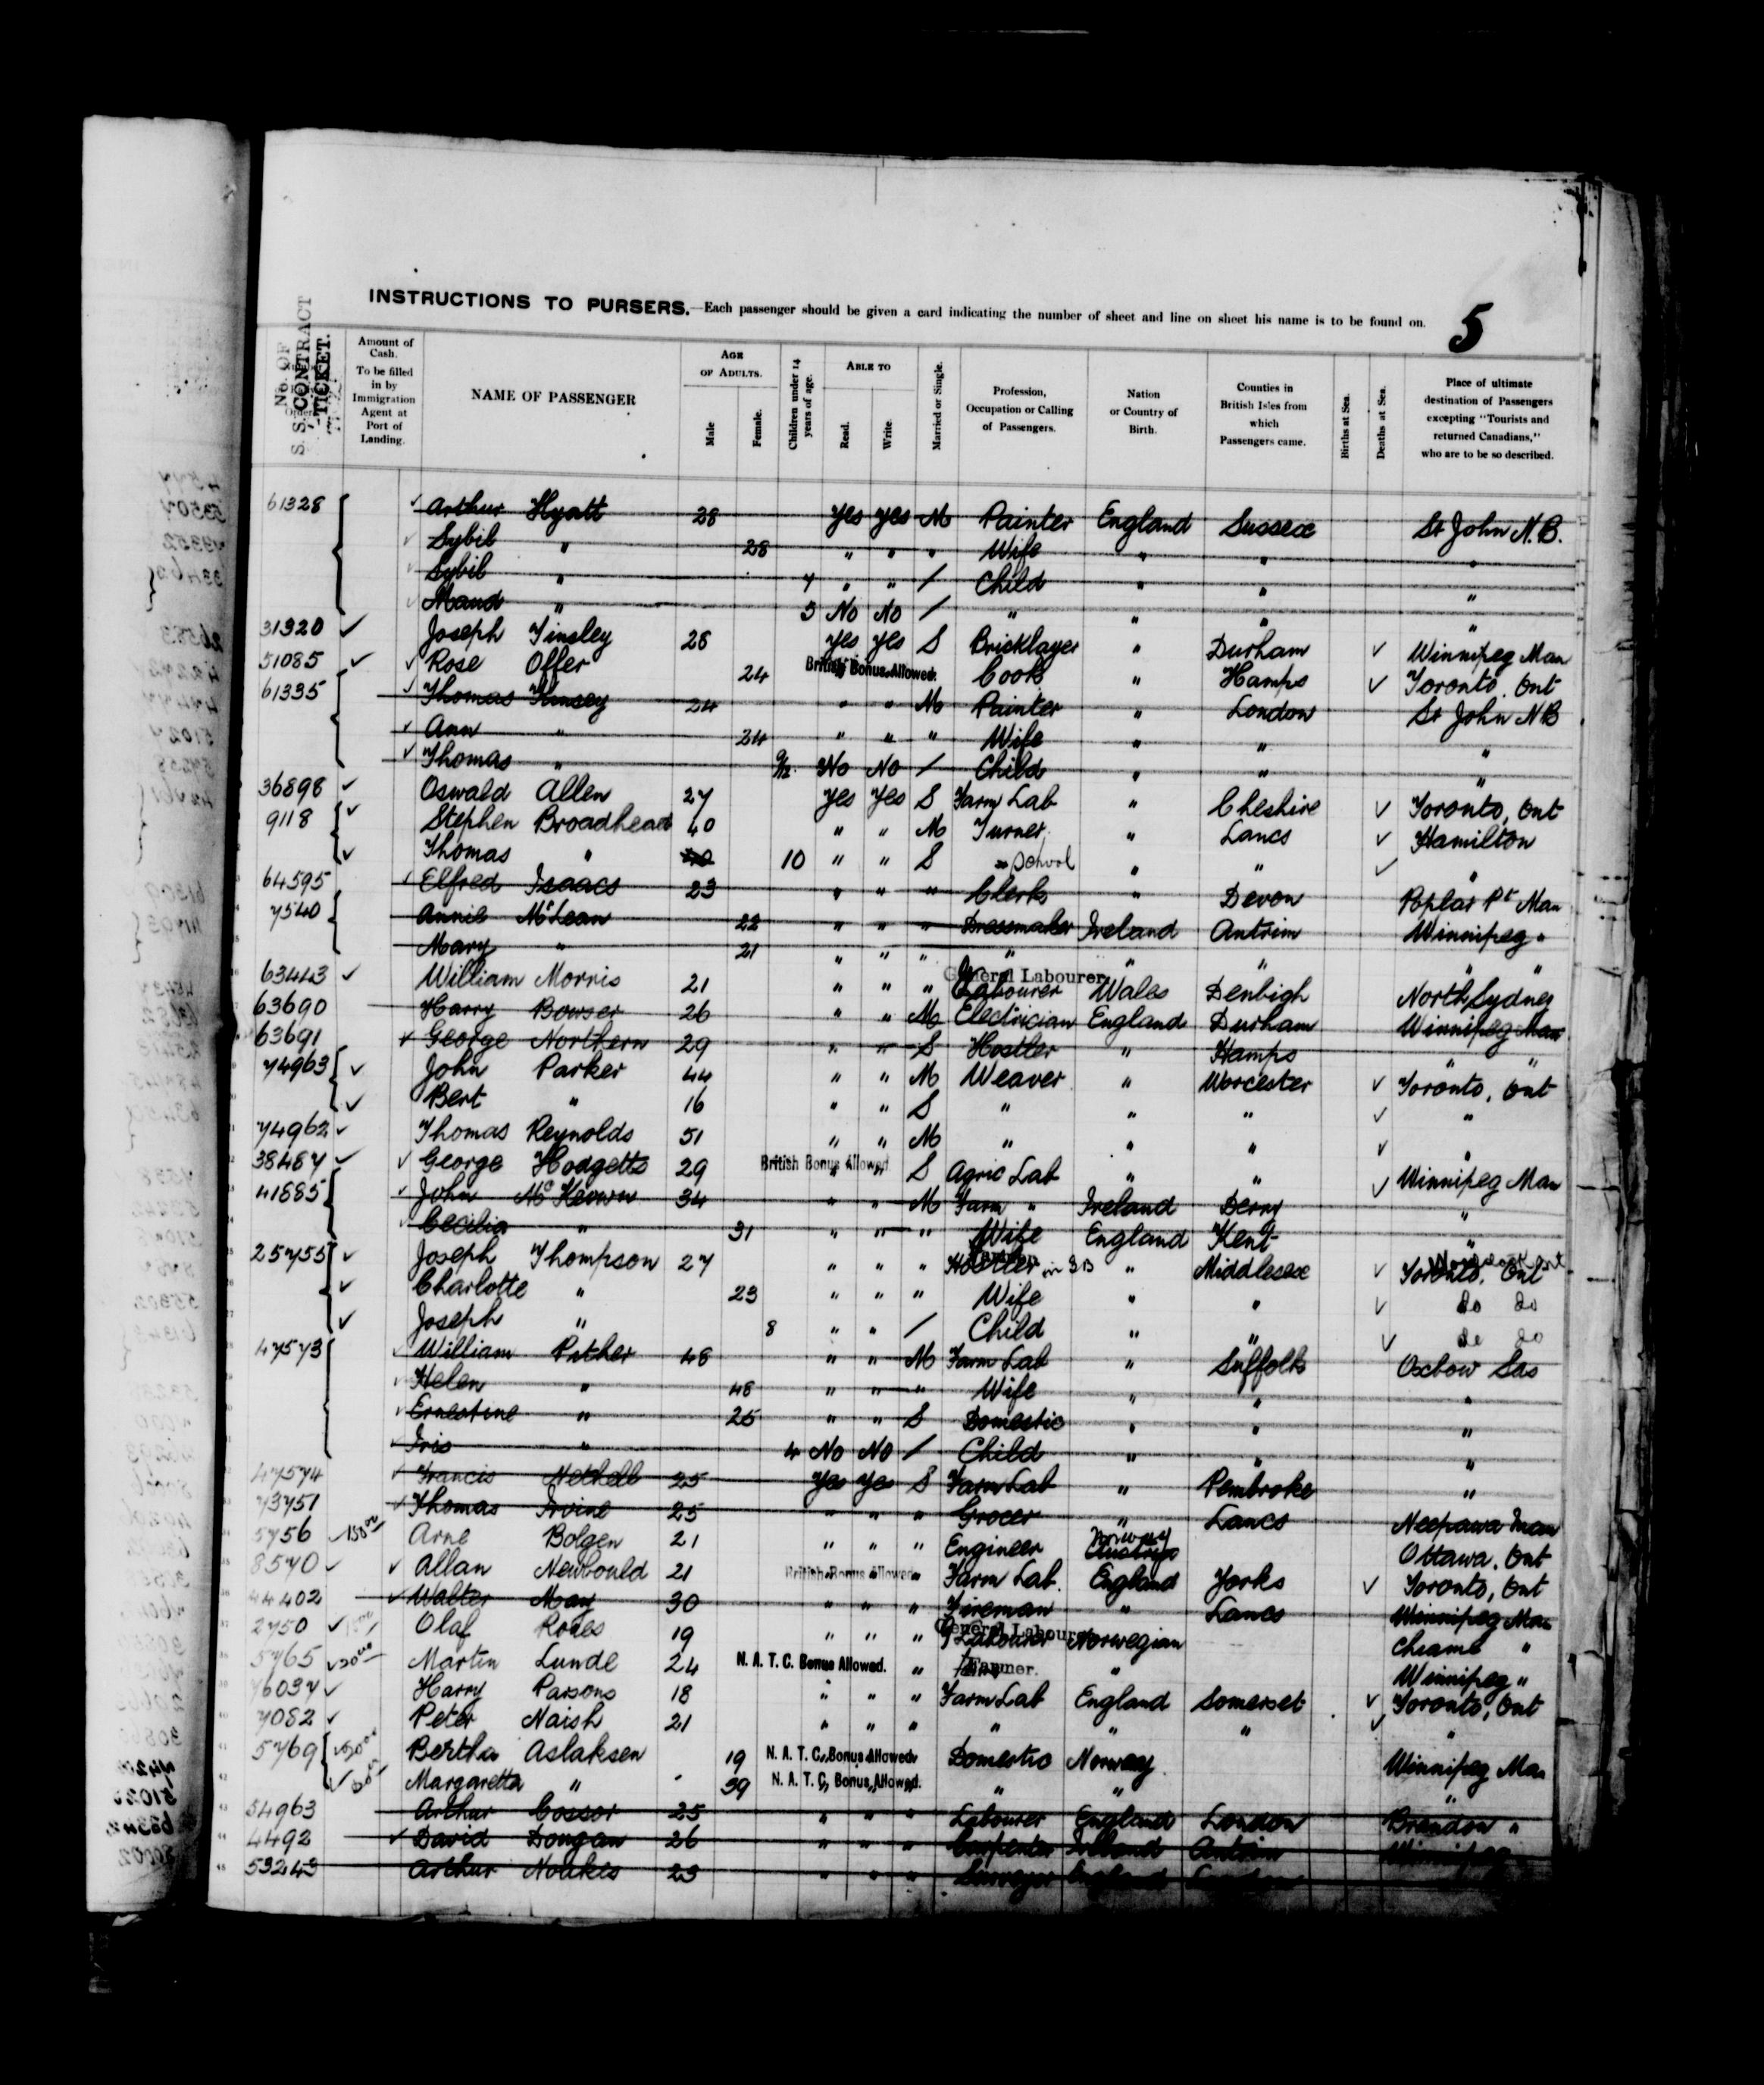 INSTRUCTIONS TO PURSERS.—Each passenger should be given a card indicating the number of sheet and line on sheet his name is to be found on.
5
No. OF S. S. CONTRACT TICKET.
Amount of Cash. To be filled in by Immigration Agent at Port of Landing.
NAME OF PASSENGER
AGE OF ADULTS. Male Female.
Children under 14 years of age.
ABLE TO Read. Write.
Married or Single.
Profession, Occupation or Calling of Passengers.
Nation or Country of Birth.
Counties in British Isles from which Passengers came.
Births at Sea.
Deaths at Sea.
Place of ultimate destination of Passengers excepting "Tourists and returned Canadians," who are to be so described.
61328 Arthur Hyatt 28 Yes Yes M Painter England Sussex St John N.B.
Sybil " 28 " " " Wife " " "
Sybil " 7 " " / Child " " "
Maud " 5 No No / " " " "
31320 Joseph Tinsley 28 Yes Yes S Bricklayer " Durham Winnipeg Man
51085 Rose Offer 24 British Bonus Allowed. Cook " Hamps Toronto. Ont
61335 Thomas Kinsey 24 " " M Painter " London St John NB
Ann " 24 " " " Wife " " "
Thomas " 9/12 No No / Child " " "
36898 Oswald Allen 27 Yes Yes S Farm Lab " Cheshire Toronto, Ont
9118 Stephen Broadhead 40 " " M Turner " Lancs Hamilton
Thomas " 10 " " S School " " "
64595 Elfred Isaacs 23 " " " Clerk " Devon Poplar Pt Man
7540 Annie McLean 22 " " " Dressmaker Ireland Antrim Winnipeg "
Mary " 21 " " " " " " " "
63443 William Morris 21 " " " General Labourer Labourer Wales Denbigh North Sydney
63690 Harry Bowser 26 " " M Electrician England Durham Winnipeg Man
63691 George Northern 29 " " S Hostler " Hamps " "
74963 John Parker 44 " " M Weaver " Worcester Toronto, Ont
Bert " 16 " " S " " " "
74962 Thomas Reynolds 51 " " M " " " "
38487 George Hodgetts 29 British Bonus Allowed S Agric Lab " " Winnipeg Man
41885 John McKeown 34 " " M Farm " Ireland Derry "
Cecilia " 31 " " " Wife England Kent "
25755 Joseph Thompson 27 " " " Hostler " Middlesex Toronto. Ont
Charlotte " 23 " " " Wife " " do do
Joseph " 8 " " / Child " " do do
47573 William Pither 48 " " M Farm Lab " Suffolk Oxbow Sas
Helen " 48 " " " Wife " " "
Ernestine " 25 " " S Domestic " " "
Iris " 4 No No / Child " " "
47574 Francis 25 Yes Yes S Farm Lab " Pembroke "
73751 Thomas Irvine 25 " " " Grocer " Lancs Neepawa Man
5756 150 00 Arne Bolgen 21 " " " Engineer Norway Ottawa. Ont
8570 Allan Newbould 21 British Bonus Allowed " Farm Lab. England Yorks Toronto, Ont
44402 Walter May 30 " " " Fireman " Lancs Winnipeg Man
2750 Olaf 19 " " " General Labourer Labourer Norwegian "
5765 20 00 Martin Lunde 24 N. A. T. C. Bonus Allowed. " Farmer. " Winnipeg "
76037 Harry Parsons 18 " " " Farm Lab England Somerset Toronto, Ont
7082 Peter Naish 21 " " " " " " "
5769 Bertha Aslaksen 19 N. A. T. C. Bonus Allowed Domestic Norway Winnipeg Man
Margaretta " 39 N. A. T. C. Bonus Allowed. " " "
54963 Arthur Cossor 25 " " " Labourer England London Brandon "
4492 David Dougan 26 " " " Carpenter Ireland Antrim Winnipeg
53243 Arthur Noakes 23 " " " Surveyor England London